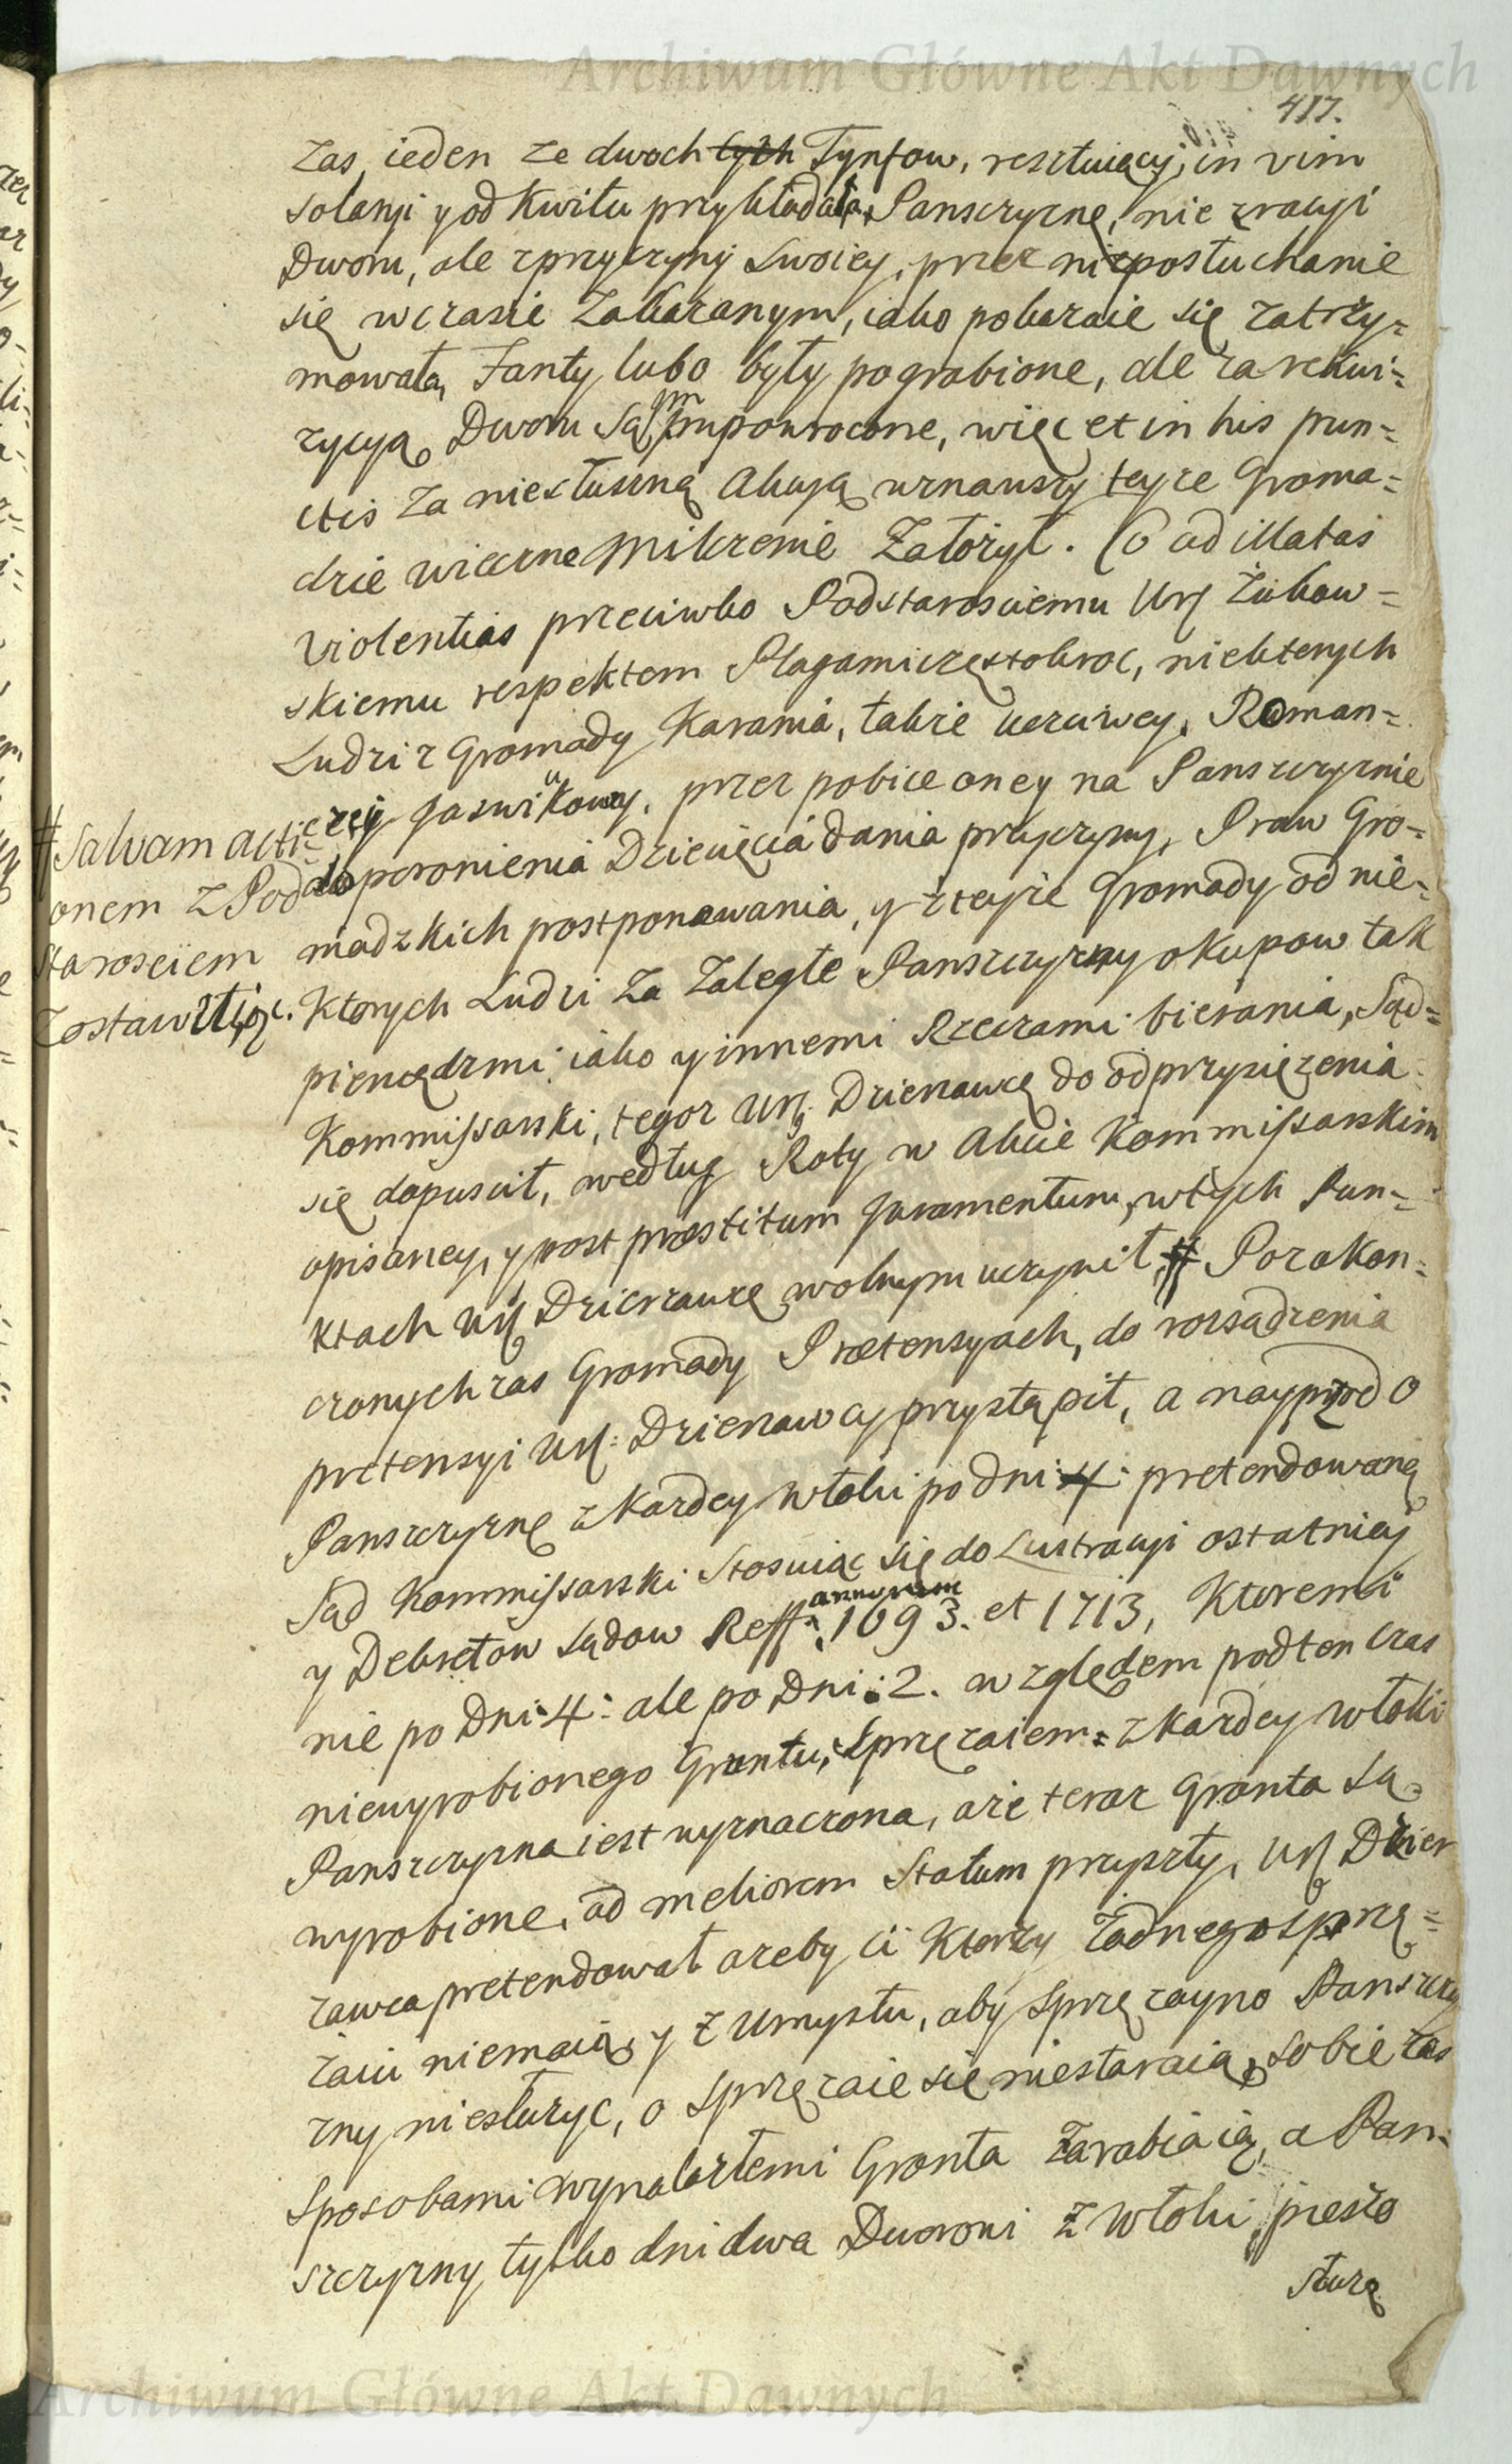 Archiwum Główne Akt Dawnych
417.
zas, ieden ze dwoch tych Tynfow, resztuiący, in vim
solarij y od Kwitu przykładała, Panszczyznę, nie zracyi
Dworu, ale zprzyczyny Swoiey, przez nieposłuchanie
się wczasie Zakazanym, iako pokazuie się zatrzy=
mowała, Fanty lubo były pograbione, ale za rekwi=
zycyą Dworu Są Im powrocone, więc et in his pun=
ctis za niesłuszną Akcyą uznawszy teyże Groma=
dzie wieczne Milczenie Założył. Co ad illatas
violentias przeciwko Podstarosciemu Ur: Żukow=
skiemu respektem Plagami częstokroc, niektorych
Ludzi z Gromady Karania, także uczciwey, Roman=
czey Jaswikowy, przez pobicie oney na Panszczyznie
do poronienia Dziecięcia dania przyczyny, Praw Gro=
madzkich postponowania, y z teyże Gromady od nie=
Ktorych Ludzi za Zaległe Panszczyzny okupow tak
pieniędzmi iako y innemi Rzeczami bierania, Sąd=
Kommissarski, tegoz Ur: Dzierzawcę do odprzysiężenia
się dopuscił, według Roty w Akcie Kommissarskim
opisaney, y post præstitum Juramentum, wtych Pun=
ktach Ur: Dzierzawcę wolnym uczynił, # Po zakon=
czonych zas Gromady Prætensyach, do rozsądzenia
pretensyi Ur: Dzierzawcy przystąpił, a nayprzod o
Panszczyznę z Kazdey Włoki po dni 4: pretendowaną
Sąd Kommissarski Stosuiąc się do Lustracyi ostatniey
y Dekretow Sądow Reff: annorum 1693. et 1713, Ktoremi
nie po Dni 4: ale po Dni: 2. względem podten Czas
niewyrobionego Gruntu, Sprzężaiem z Kazdey Włoki
Panszczyzna iest wyznaczona, aże teraz Gronta są
wyrobione, ad meliorem Statum przyszły, Ur: Dzier
zawca pretendował ażeby ci Ktorzy żadnego sprzę=
żaiu niemaią, y z Umysłu, aby Sprzęzayno Panszczy
zny niesłuzyc, o Sprzęzaie się niestaraią, sobie zas
Sposobami wynalazłemi Gronta Zarabiaią, a Pan=
szczyzny tylko dni dwa Dworowi z Włoki pieszo
służą
# Salvam acti=
onem z Pod
Starosciem
Zostawuiąc.
Archiwum Główne Akt Dawnych